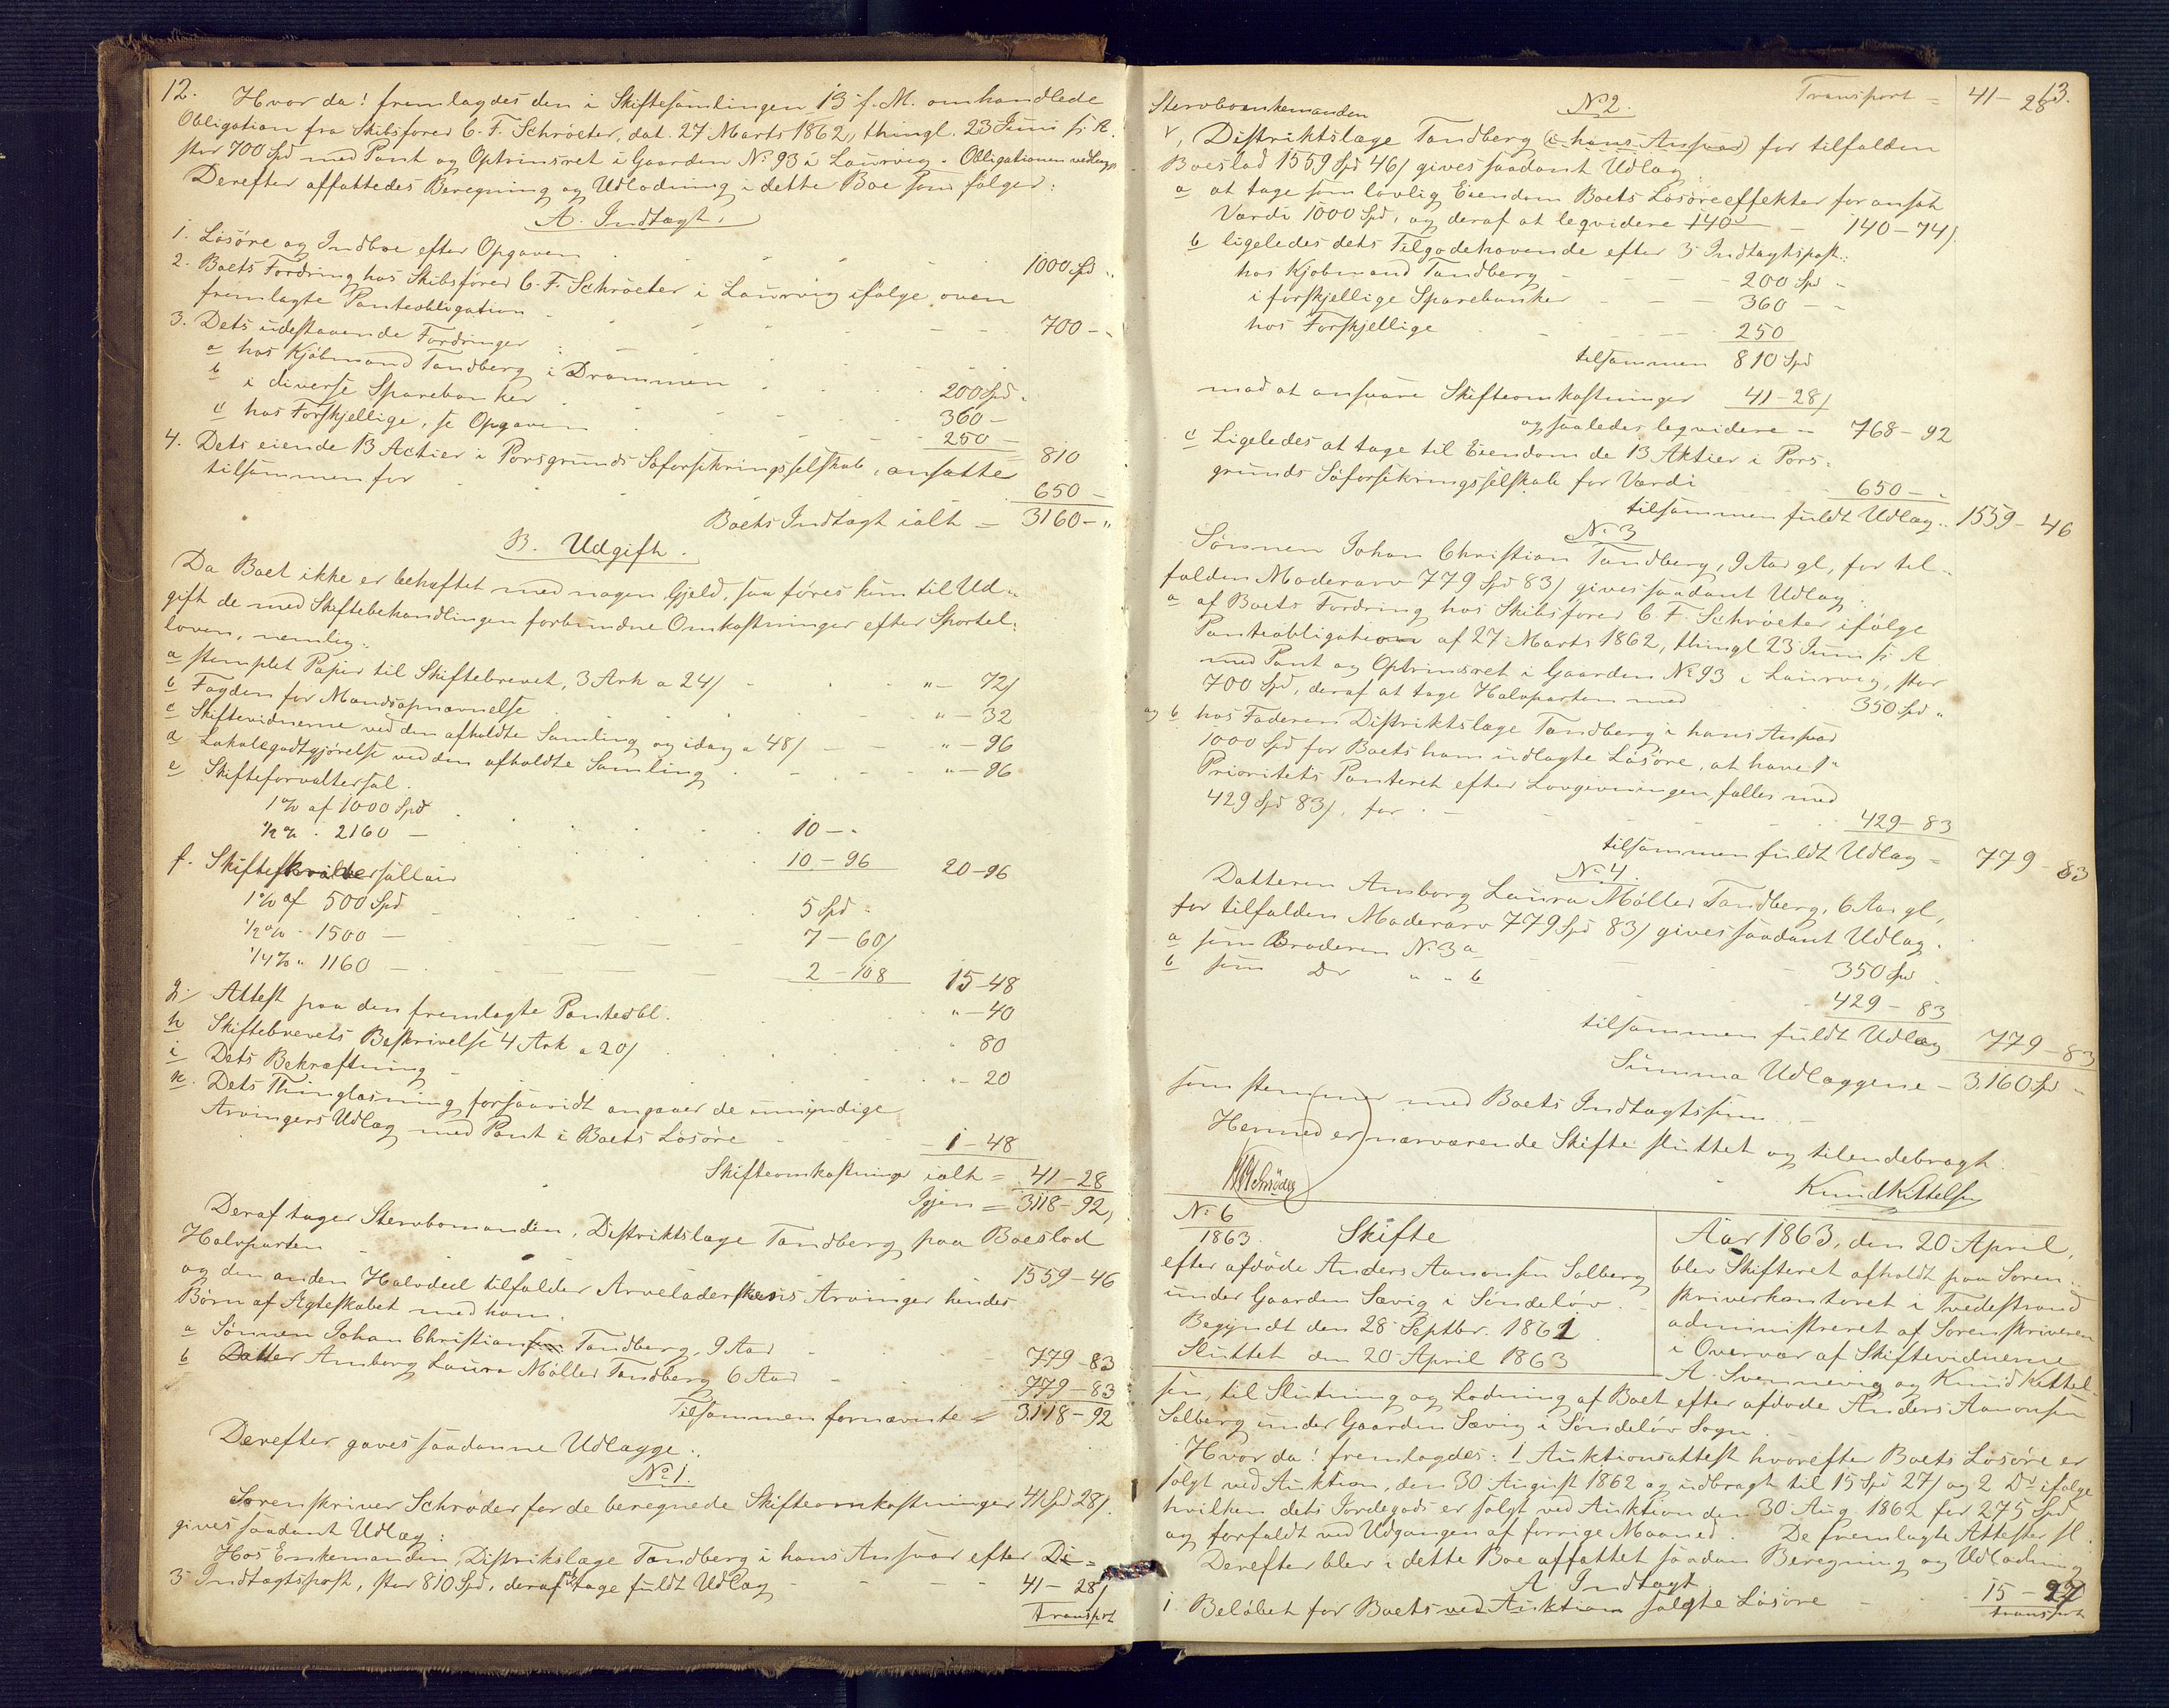 12.
Hvor da! fremlagdes den i Skiftesamlingen 13 f. M. omhandlede
Obligation fra Skibsfører C. F. Schrøeter, dat. 27 Marts 1862, thingl. 23 Juni s. A.
stor 700 Spd med Pant og Optrinsret i Gaarden No 93 i Laurvig. Obligationen vedlægges
Derefter affattedes Beregning og Udlodning i dette Boe som følger:
A. Indtægt.
1. Løsøre og Indboe efter Opgaven 1000 Spd "
2. Boets Fordring hos Skibsfører C. F. Schrøeter i Laurvig ifølge oven
fremlagte Panteobligation 700 - "
3. Dets udestaaende Fordringer:
a hos Kjøbmand Tandberg i Drammen 200 Spd "
b i diverse Sparebanker 360 -
c hos Forskjellige, se Opgaven 250 - 810
4. Dets eiende 13 Actier i Porsgrunds Søforsikringsselskab, ansatte
tilsammen for 650 -
Boets Indtægt ialt = 3160 - "
B. Udgift.
Da Boet ikke er behæftet med nogen Gjeld, saa føres kun til Ud-
gift de med Skiftebehandlingen forbundne Omkostninger efter Sportel-
loven, nemlig:
a stemplet Papir til Skiftebrevet, 3 Ark a 24/ " - 72/
b Fogden for Mandsopnævnelse " - 32
c Skiftevidnerne ved den afholdte Samling og idag a 48/ " - 96
d Lokalegodtgjørelse ved den afholdte Samling " - 96
e Skifteforvaltersal.
1 % af 1000 Spd 10 - "
1/2 % " 2160 - 10 - 96 20 - 96
f. Skifteskriversallair
1 % af 500 Spd 5 Spd "
1/2 % " 1500 - 7 - 60/
1/4 % " 1160 - 2 - 108 15 - 48
g. Attest paa den fremlagte Panteobl. " - 40
h Skiftebrevets Beskrivelse 4 Ark a 20/ " 80
i Dets Bekræftning " - 20
k. Dets Thinglæsning forsaavidt angaaer de umyndige
Arvingers Udlæg med Pant i Boets Løsøre 1 - 48
Skifteomkostninger ialt = 41 - 28
Igjen = 3118 - 92/
Deraf tager Stervbomanden, Distriktslæge Tandberg paa Boeslod
Halvparten 1559 - 46
og den anden Halvdeel tilfalder Arveladerskens Arvinger hendes
Børn af Ægteskabet med ham.
a Sønnen Johan Christian Tandberg, 9 Aar 779 - 83
b Datter Amborg Laura Møller Tandberg 6 Aar 779 - 83
Tilsammen fornævnte = 3118 - 92
Derefter gaves saadanne Udlægge:
No 1.
Sorenskriver Schrøder for de beregnede Skifteomkostninger 41 Spd 28/.
gives saadant Udlæg:
Hos Enkemanden, Distrikslæge Tandberg i hans Ansvar efter
3 Indtægtspost, stor 810 Spd, deraf at tage fuldt Udlæg 41 - 28/
Transport
13.
Transport = 41 - 28
No 2.
Stervboenkemanden
Distriktslæge Tandberg (i hans Ansvar) for tilfalden
Boeslod 1559 Spd 46/ gives saadant Udlæg:
a at tage som lovlig Eiendom Boets Løsøreeffekter for ansat
Værdi 1000 Spd, og deraf at leqvidere 140 - 140 - 74/.
b ligeledes dets Tilgodehavende efter 3 Indtægtspost:
hos Kjøbmand Tandberg 200 Spd "
i forskjellige Sparebanker 360 -
hos Forskjellige 250
tilsammen 810 Spd
mod at ansvare Skifteomkostninger 41 - 28/
og saaledes leqvidere = 768 - 92
c Ligeledes at tage til Eiendom de 13 Aktier i Pors-
grunds Søforsikringsselskab for Værdi 650 - "
tilsammen fuldt Udlæg 1559 - 46
No 3
Sønnen Johan Christian Tandberg, 9 Aar gl, for til-
falden Mødrearv 779 Spd 83/ gives saadant Udlæg:
a af Boets Fordring hos Skibsfører C. F. Schrøeter ifølge
Panteobligation af 27 Marts 1862, thingl 23 Juni s. A
med Pant og Optrinsret i Gaarden No 93 i Laurvig, stor
700 Spd, deraf at tage Halvparten med 350 Spd "
og b hos Faderen Distriktslæge Tandberg i hans Ansvar
1000 Spd for Boets ham udlagte Løsøre, at have 1ste
Prioritets Panteret efter Lovgivningen fælles med
429 Spd 83/, for 429 - 83
tilsammen fuldt Udlæg = 779 - 83
No 4.
Datteren Amborg Laura Møller Tandberg, 6 Aar gl,
for tilfalden Mødrearv 779 Spd 83/ gives saadant Udlæg.
a som Broderen No 3 a 350 Spd
b som Do " " b 429 - 83
tilsammen fuldt Udlæg 779 - 83
Summa Udlæggene - 3160 Spd "
som stemmer med Boets Indtægtssum.
Hermed er nærværende Skifte sluttet og tilendebragt.
Schrøder
Knud Kittelsen
No 6
1863.
Skifte
efter afdøde Anders Aanonsen Solberg
under Gaarden Sævig i Søndeløv.
Begyndt den 28 Septbr. 1861
Sluttet den 20 April 1863
Aar 1863, den 20 April,
blev Skifteret afholdt paa Soren-
skriverkontoret i Tvedestrand
administreret af Sorenskriveren
i Overvær af Skiftevidnerne
A. Svennevig og Knud Kittel-
sen, til Slutning og Lodning af Boet efter afdøde Anders Aanonsen
Solberg under Gaarden Sævig i Søndeløv Sogn.
Hvor da! fremlagdes: 1 Auktionsattest hvorefter Boets Løsøre er
solgt ved Auktion, den 30 August 1862 og udbragt til 15 Spd 27/ og 2 Do ifølge
hvilken dets Jordegods er solgt ved Auktion den 30 Aug 1862 for 275 Spd
og forfaldt ved Udgangen af forrige Maaned. De fremlagte Attester
Derefter blev i dette Boe affattet saadan Beregning og Udlodning
A Indtægt
1. Beløbet for Boets ved Auktion solgte Løsøre 15 - 27
transport